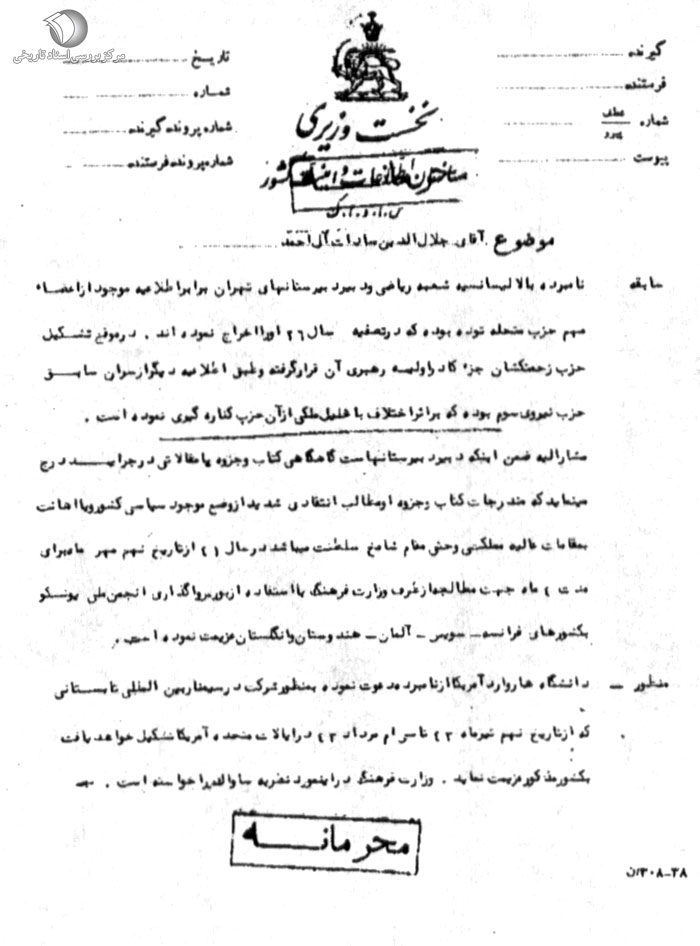 مرکز بررسی اسناد تاریخی
گیرنده
فرستنده
شماره عطف پیرو
پیوست
تاریخ
شماره
شماره پرونده گیرنده
شماره پرونده فرستنده
نخست وزیری
سازمان اطلاعات و امنیت کشور
س.ا.و.ا.ک
موضوع آقای جلال الدین سادات آل احمد
سابقه نامبرده بالا لیسانسیه شعبه ریاضی و دبیر دبیرستانهای تهران برابر اطلاعیه موجود از اعضاء
مهم حزب منحله توده بوده که در تصفیه سال ۲۶ او را اخراج نموده اند . در موقع تشکیل
حزب زحمتکشان جزء کادر اولیه رهبری آن قرار گرفته وطبق اطلاعیه دیگر از سران سابق
حزب نیروی سوم بوده که بر اثر اختلاف با خلیل ملکی از آن حزب کناره گیری نموده است .
مشارالیه ضمن اینکه دبیر دبیرستانهاست گاهگاهی کتاب وجزوه یا مقالاتی در جراید درج
مینماید که مندرجات کتاب وجزوه او مطالب انتقادی شدید از وضع موجود سیاسی کشور ویا اهانت
بمقامات عالیه مملکتی وحتی مقام شامخ سلطنت میباشد در سال ۴۱ از تاریخ نهم مهر ماه برای
مدت ۴ ماه جهت مطالعه از طرف وزارت فرهنگ با استفاده از بورس واگذاری انجمن ملی یونسکو
بکشورهای فرانسه - سویس - آلمان - هندوستان وانگلستان عزیمت نموده است .
منظور - دانشگاه هاروارد آمریکا از نامبرده دعوت نموده بمنظور شرکت در سمینار بین المللی تابستانی
که از تاریخ نهم تیرماه ۴۳ تا سی ام مرداد ۴۳ در ایالات متحده آمریکا تشکیل خواهد یافت
بکشور مذکور عزیمت نماید . وزارت فرهنگ در اینمورد نظریه ساواک را خواسته است .
محرمانه
۳۰۸-۳۸/ن